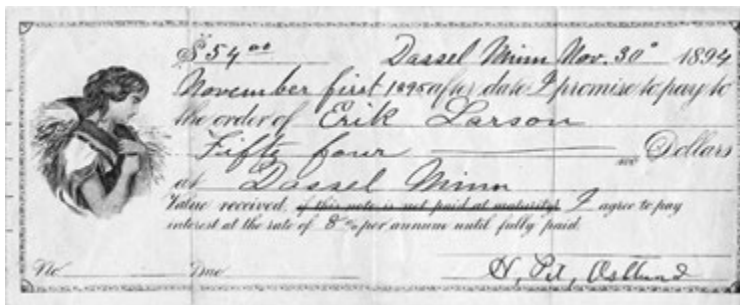 $ 54 00 Dassel Minn Nov. 30" 1894
November first 1895 after date I promise to pay to
the order of Erik Larson
Fifty four Dollars
at Dassel Minn
Value received, if this note is not paid at maturity, I agree to pay
interest at the rate of 8 % per annum until fully paid.
No. Due
H, Pet, Ostlund